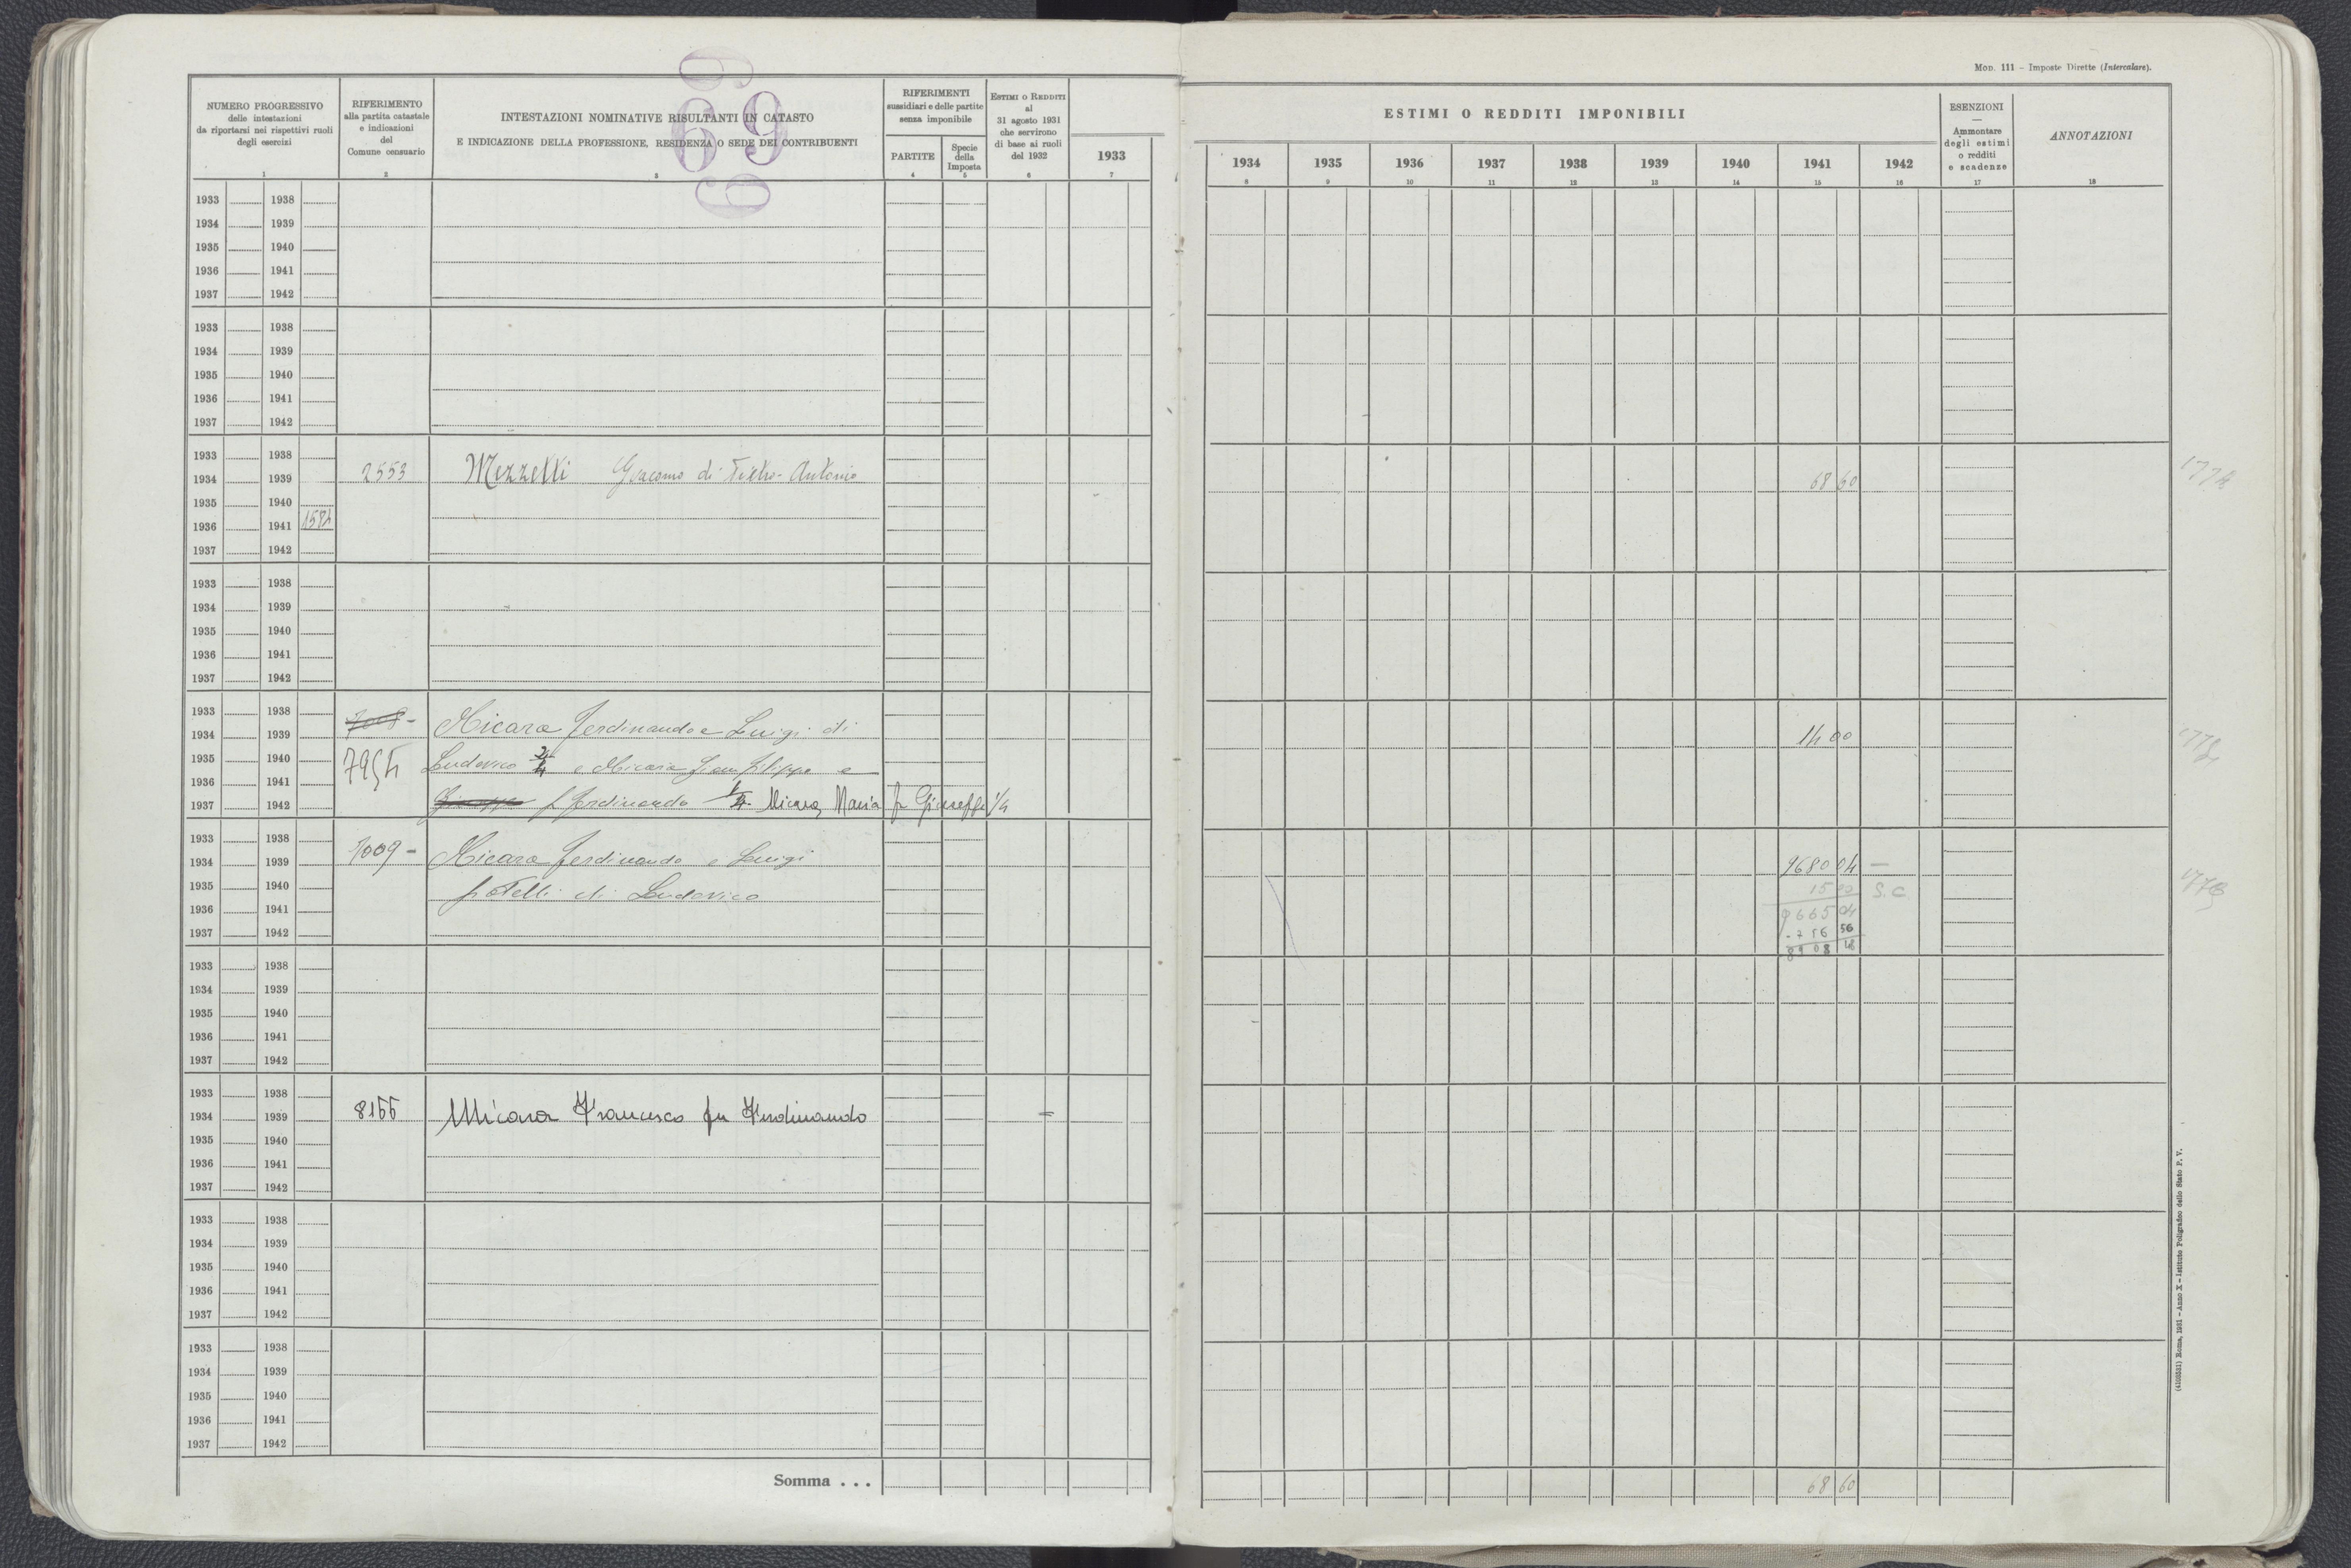 69
MOD. 111 – Imposte Dirette (Intercalare).
NUMERO PROGRESSIVO
delle intestazioni
da riportarsi nei rispettivi ruoli
degli esercizi
1
RIFERIMENTO
alla partita catastale
e indicazioni
del
Comune censuario
2
INTESTAZIONI NOMINATIVE RISULTANTI IN CATASTO
E INDICAZIONE DELLA PROFESSIONE, RESIDENZA O SEDE DEI CONTRIBUENTI
3
RIFERIMENTI
sussidiari e delle partite
senza imponibile
PARTITE
4
Specie
della
Imposta
5
ESTIMI O REDDITI
al
31 agosto 1931
che servirono
di base ai ruoli
del 1932
6
1933
7
ESTIMI O REDDITI IMPONIBILI
1934 1935 1936 1937 1938 1939 1940 1941 1942
8 9 10 11 12 13 14 15 16
ESENZIONI
—
Ammontare
degli estimi
o redditi
e scadenze
17
ANNOTAZIONI
18
1933 1938
1934 1939
1935 1940
1936 1941
1937 1942
1933 1938
1934 1939
1935 1940
1936 1941
1937 1942
1933 1938
1934 1939 2553 Mezzelli Giacomo di Pietro-Antonio 68 60
1935 1940
1936 1941 1584
1937 1942
1933 1938
1934 1939
1935 1940
1936 1941
1937 1942
1933 1938 7008-
1934 1939 Micara Ferdinando e Luigi di 14 00
1935 1940 7954 Ludovico 2/4 e Micara Gian Filippo e
1936 1941
1937 1942 Giuseppe f Ferdinando 1/4 Micara Maria fu Giuseppe 1/4
1933 1938
1934 1939 7009- Micara Ferdinando e Luigi 9680 04 —
1935 1940 fratelli di Ludovico 15 00 S.C.
1936 1941 9665 04
1937 1942 -756 56
8908 48
1933 1938
1934 1939
1935 1940
1936 1941
1937 1942
1933 1938
1934 1939 8166 Micara Francesco fu Ferdinando =
1935 1940
1936 1941
1937 1942
1933 1938
1934 1939
1935 1940
1936 1941
1937 1942
1933 1938
1934 1939
1935 1940
1936 1941
1937 1942
Somma . . . 68 60
(4100381) Roma, 1931 – Anno X – Istituto Poligrafico dello Stato P. V.